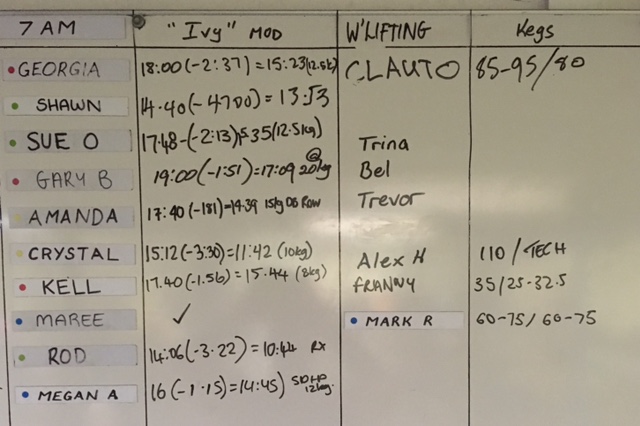 7 AM "Ivy" MOD W'LIFTING Kegs
GEORGIA 18:00(-2:37)=15:23(12.5k) CLAUTO 85-95/80
SHAWN 14.40(-47 )= 13:53
SUE O 17.48-(-2:13) 35(12.5kg) Trina
GARY B 19:00(-1:51)=17:09 @ 20kg Bel
AMANDA 17:40(-181)=14.39 15kg DB Row Trevor
CRYSTAL 15:12(-3:30)=11:42 (10kg) Alex H 110 / TECH
KELL 17.40(-1.56)=15.44 (8kg) FRANNY 35/25-32.5
MAREE ✓ MARK R 60-75/ 60-75
ROD 14:06(-3.22)=10:44 RX
MEGAN A 16(-1.15)=14:45) SDHP 12kg.